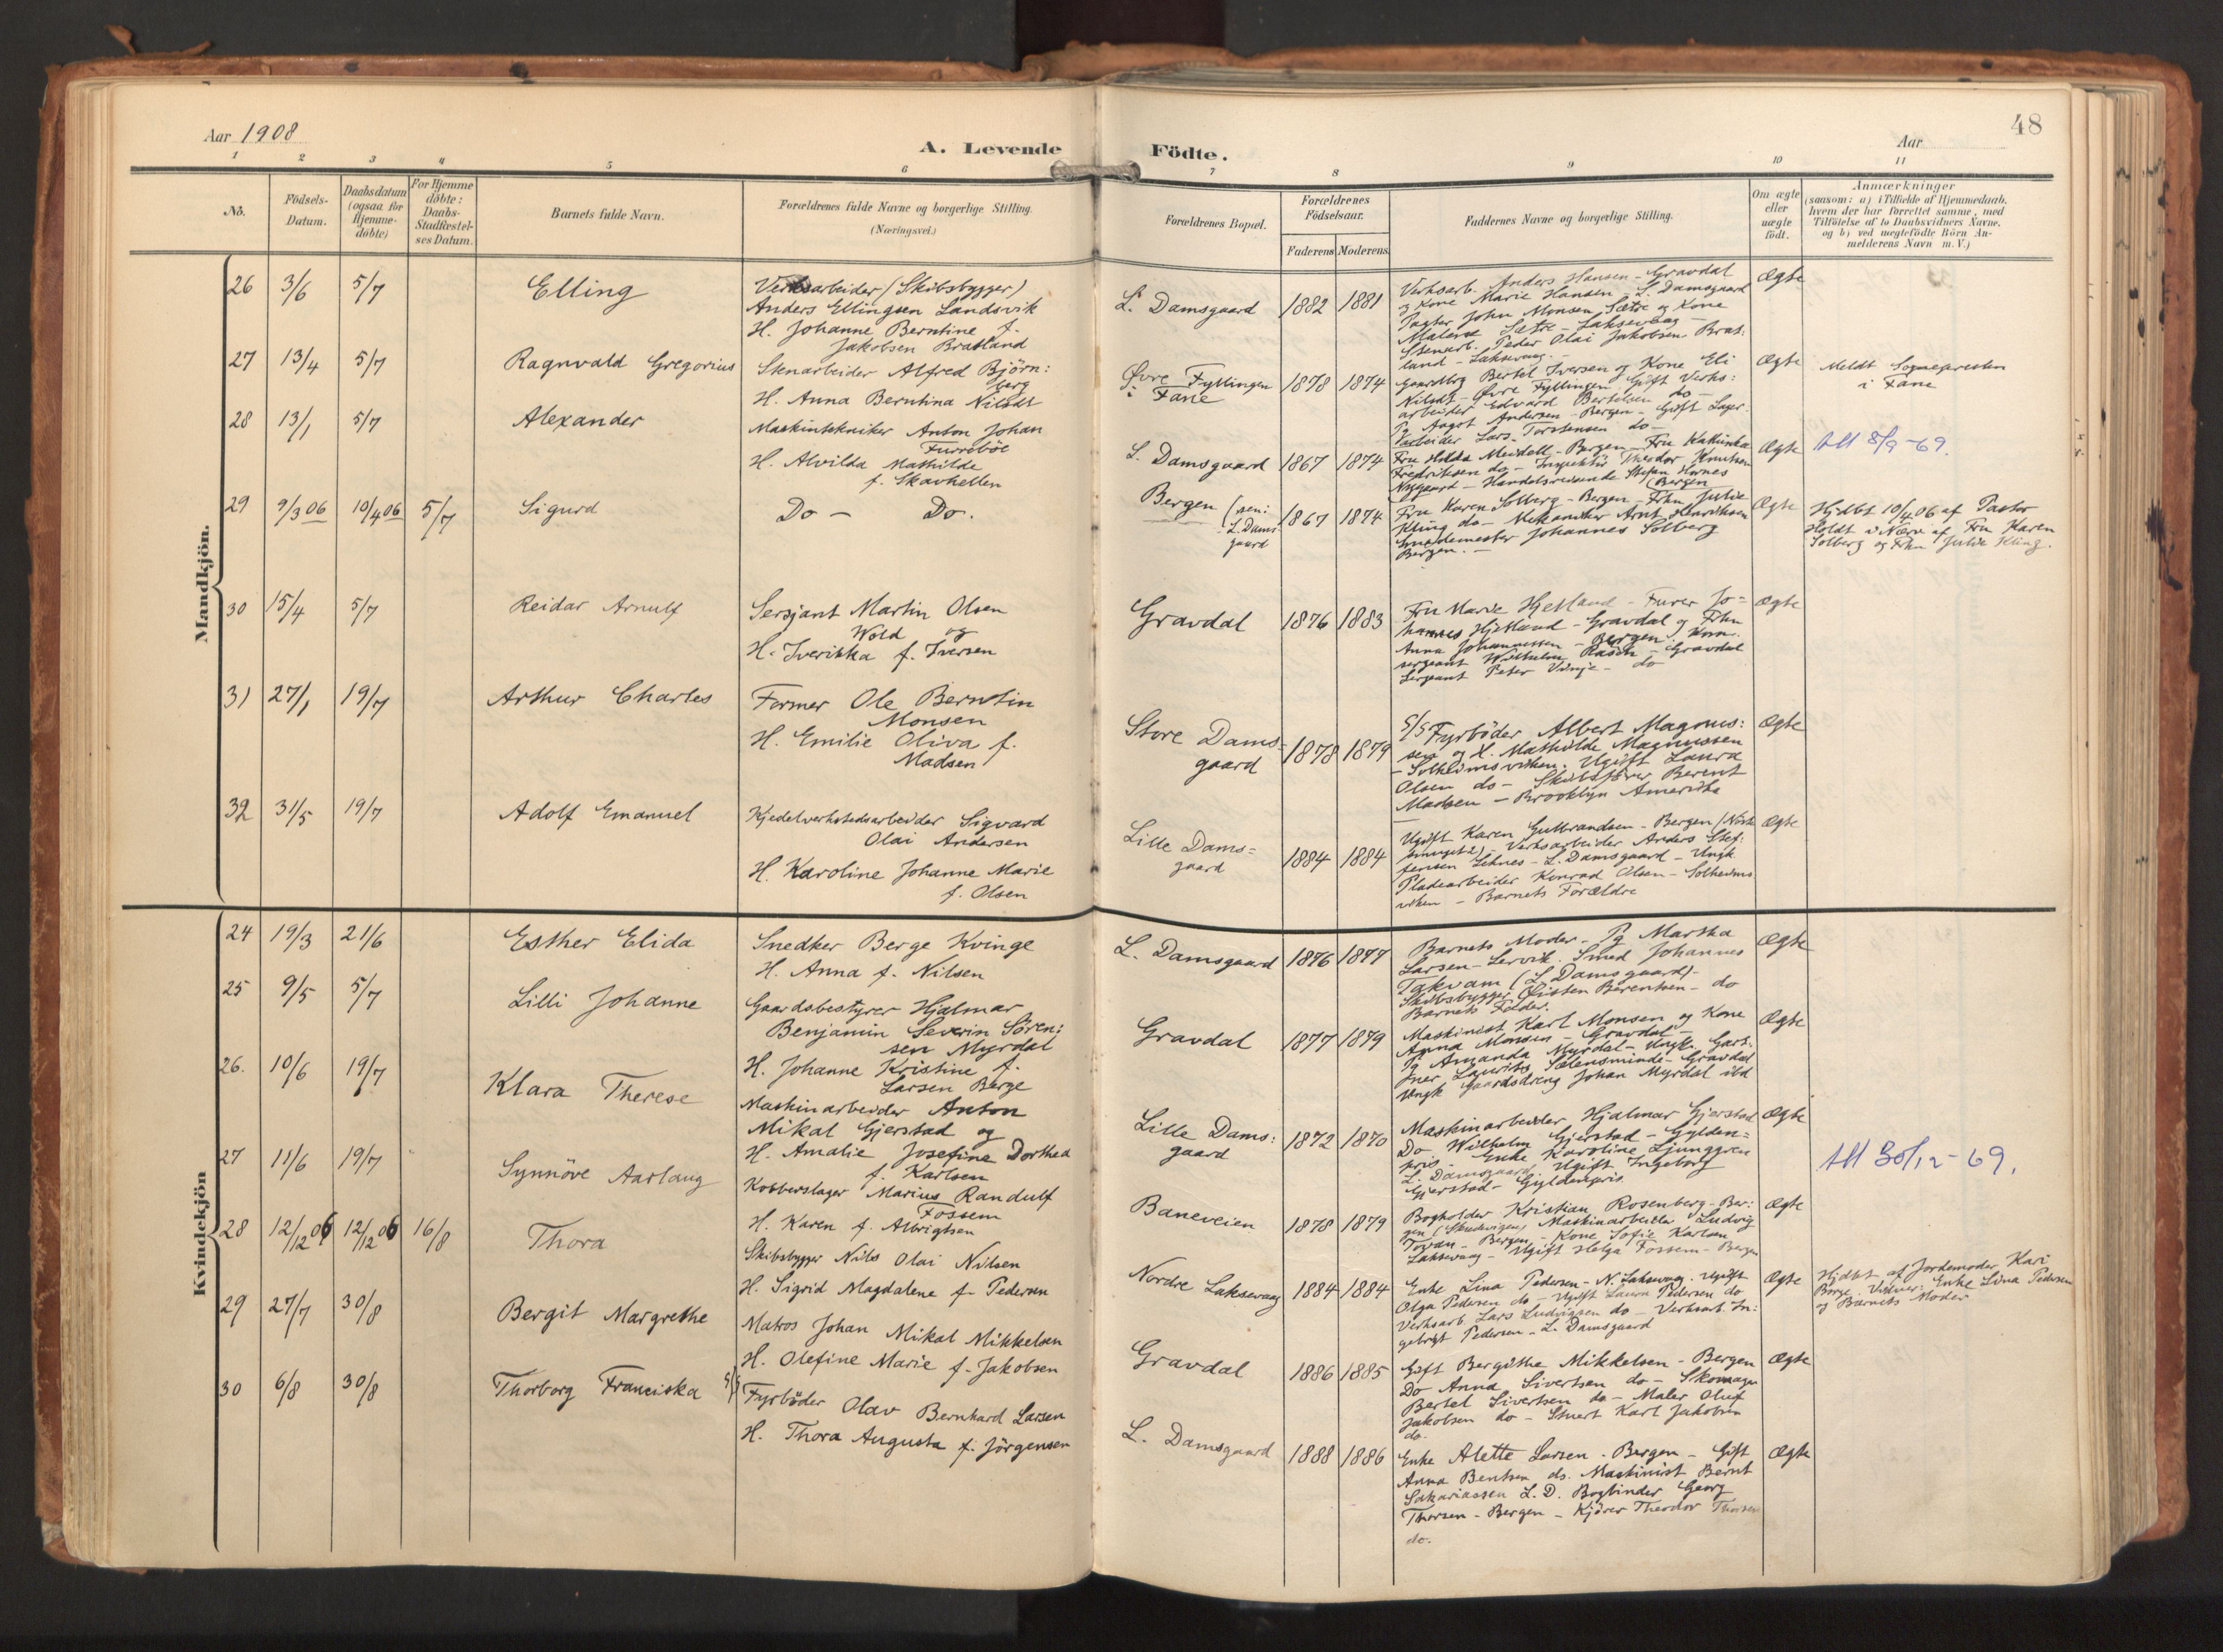 Aar 1908
A. Levende
1 2 3 4 5 6
No.
Födsels-
Datum.
Daabsdatum
(ogsaa for
Hjemme-
döbte)
For Hjemme
döbte:
Daabs-
Stadfæstel-
ses Datum.
Barnets fulde Navn.
Forældrenes fulde Navne og borgerlige Stilling.
(Næringsvei.)
Mandkjön.
26 3/6 5/7 Elling
Verksarbeider (Skibsbygger)
Anders Ellingsen Landsvik
H. Johanne Berntine f.
Jakobsen Bratland
27 13/4 5/7 Ragnvald Gregorius
Stenarbeider Alfred Björn:
berg
H. Anna Berntina Nilsdt
28 13/1 5/7 Alexander
Maskintekniker Anton Johan
Fureböe
H. Alvilda Mathilde
f. Skavhellen
29 9/3 06 10/4 06 5/7 Sigurd
Do - Do.
30 15/4 5/7 Reidar Arnulf
Sersjant Martin Olsen
Wold og
H. Iverikka f. Iversen
31 27/1 19/7 Arthur Charles
Former Ole Berntin
Monsen
H. Emilie Oliva f.
Madsen
32 31/5 19/7 Adolf Emanuel
Kjedelverkstedsarbeider Sigvard
Olai Andersen
H. Karoline Johanne Marie
f. Olsen
Kvindekjön
24 19/3 21/6 Esther Elida
Snedker Berge Kvinge
H. Anna f. Nilsen
25 9/5 5/7 Lilli Johanne
Gaardsbestyrer Hjalmar
Benjamin Severin Sören:
sen Myrdal
H. Johanne Kristine f.
Larsen Berge
26. 10/6 19/7 Klara Therese
Maskinarbeider Anton
Mikal Gjerstad og
H. Amalie Josefine Dorthea
f. Karlsen
27 11/6 19/7 Synnöve Aarlaug
Kobberslager Marius Randulf
Fossem
H. Karen f. Albrigtsen
28 12/12 06 12/12 06 16/8 Thora
Skibsbygger Nils Olai Nilsen
H. Sigrid Magdalene f. Pedersen
29 27/7 30/8 Bergit Margrethe
Matros Johan Mikal Mikkelsen
H. Olefine Marie f. Jakobsen
30 6/8 30/8 Thorborg Franciska
S/S Fyrböder Olav Bernhard Larsen
H. Thora Augusta f. Jörgensen
48
Födte.
Aar
7 8 9 10 11
Forældrenes Bopæl.
Forældrenes
Födselsaar.
Faderens Moderens
Faddernes Navne og borgerlige Stilling.
Om ægte
eller
uægte
födt.
Anmærkninger
(saasom: a) i Tilfælde af Hjemmedaab,
hvem der har forrettet samme, med
Tilföielse af to Daabsvidners Navne,
og b) ved uægtefödte Börn An-
melderens Navn m. V.)
L. Damsgaard 1882 1881
Verksarb. Anders Hansen - Gravdal
og Kone Marie Hansen L. Damsgaard
John Monsen Sætre og Kone
Malene Sætre - Laksevaag -
Stenarb. Peder Olai Jakobsen Brat:
land - Laksevaag. -
Ægte
Övre Fyllingen
i Fane
1878 1874
Gaardbrg Bertel Iversen og Kone Eli
Nilsdt - Övre Fyllingen. Gift Verks:
arbeider Edvard Bertelsen do -
Pg Aagot Andersen - Bergen - Gift Lager:
arbeider Lars Torstensen do -
Ægte
Meldt Sognepresten
i Fane
L. Damsgaard 1867 1874
Fru Hilda Meidell - Bergen - Fru Kathinka
Fredriksen do - Inspektör Theodor Knutsen
Nygaard - Handelsreisende Stefan Hornes
(Bergen
Ægte
Att 8/9-69.
Bergen (nu:
L. Dams:
gaard
1867 1874
Fru Karen Solberg - Bergen - Frkn Julie
Kling do - Mekaniker Arnt Henriksen
Smedemester Johannes Solberg
Bergen. -
Ægte
Hjdbt 10/4 06 af Pastor
Holdt i Nærv. af Fru Karen
Solberg og Frkn Julie Kling.
Gravdal 1876 1883
Fru Marie Hjetland - Furer Jo=
hannes Hjetland - Gravdal og Frkn
Anna Johannessen - Bergen. Korn.
sergeant Wilhelm Rasch - Gravdal
Sergeant Peter Vinje - do
Ægte
Store Dams-
gaard
1878 1879
S/S Fyrböder Albert Magnus:
sen og H. Mathilde Magnussen
- Solheimsviken. Ugift Laura
Olsen do - Skibsförer Berent
Madsen - Brooklyn Amerika
Ægte
Lille Dams=
gaard
1884 1884
Ugift Karen Gulbrandsen - Bergen
Verksarbeider Anders Stef:
fensen Leknes - L. Damsgaard - Ungk
Pladearbeider Konrad Olsen - Solheims
viken - Barnets Forældre
Ægte
L. Damsgaard 1876 1877
Barnets Moder - Pg Martha
Larsen - Lervik. Smed Johannes
Takvam (L. Damsgaard) -
Skibsbygger Öisten Berentsen - do
Barnets Fader.
Ægte
Gravdal 1877 1879
Maskinist Karl Monsen og Kone
Anna Monsen - Gravdal -
Pg Amanda Myrdal - Ungk. Gart:
ner Laurits Sælensminde - Gravdal
Ungk Gaardsdreng Johan Myrdal ibd
Ægte
Lille Dams:
gaard
1872 1870
Maskinarbeider Hjalmar Gjerstad
Do Wilhelm Gjerstad - Gylden=
pris - Enke Karoline Ljunggren
L. Damsgaard Ugift Ingeborg
Gjerstad - Gyldenpris
Ægte
Att 30/12-69.
Baneveien 1878 1879
Bogholder Kristian Rosenberg - Ber:
gen (Skudevigen) Maskinarbeider Ludvig
- Bergen - Kone Sofie Karlsen
Laksevaag - Ugift Helga Fossem - Bergen
Ægte
Nordre Laksevaag 1884 1884
Enke Lina Pedersen - N. Laksevaag. Ugift
Olga Pedersen do - Ugift Laura Pedersen do
Verksarb. Lars Ludvigsen do - Verksarb. In:
gebrigt Pedersen - L. Damsgaard
Ægte
Hjdbt af Jordemoder Kari
Berge. Vidner: Enke Lina Pedersen
og Barnets Moder
Gravdal 1886 1885
Gift Bergithe Mikkelsen - Bergen
Do Anna Sivertsen do - Skomager
Bertel Sivertsen do - Maler Oluf
Jakobsen do - Stuert Karl Jakobsen
do -
Ægte
L. Damsgaard 1888 1886
Enke Alette Larsen - Bergen - Gift
Anna Bentsen do. Maskinist Bernt
Sakariassen L. D. Bogbinder Georg
Thorsen - Bergen - Kjörer Theodor Thorsen
do.
Ægte